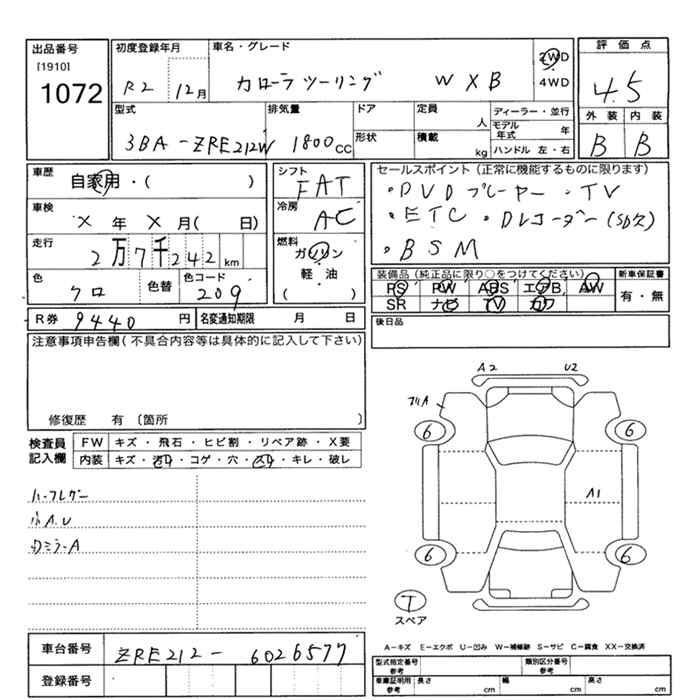 出品番号
[1910]
1072
初度登録年月
R2 12月
車名・グレード
カローラツーリング W×B
2WD
4WD
評価点
4.5
外装 内装
B B
型式
3BA-ZRE212W
排気量
1800cc
ドア
形状
定員 人
積載 kg
ディーラー・並行
モデル年式 年
ハンドル 左・右
車歴
自家用・( )
車検
× 年 × 月( 日)
走行
2万7千242km
色
クロ
色替
色コード
209
シフト
FAT
冷房
AC
燃料
ガソリン
軽油
( )
セールスポイント(正常に機能するものに限ります)
・DVDプレーヤー・TV
・ETC・Dレコーダー(SD欠)
・BSM
装備品(純正品に限り○をつけてください)
PS PW ABS エアB AW
SR ナビ TV カワ
新車保証書
有・無
R券 9440円
名変通知期限 月 日
後日品
注意事項申告欄(不具合内容等は具体的に記入して下さい)
修復歴 有〔箇所 〕
検査員記入欄
FW キズ・飛石・ヒビ割・リペア跡・X要
内装 キズ・汚レ・コゲ・穴・スレ・キレ・破レ
小A.U
A2 U2
6 6
A1
6 6
T
スペア
車台番号
ZRE212-6026577
登録番号
A-キズ E-エクボ U-凹み W-補修跡 S-サビ C-腐食 XX-交換済
型式指定番号 参考
類別区分番号 参考
車庫証明用 参考 長さ cm 幅 cm 高さ cm